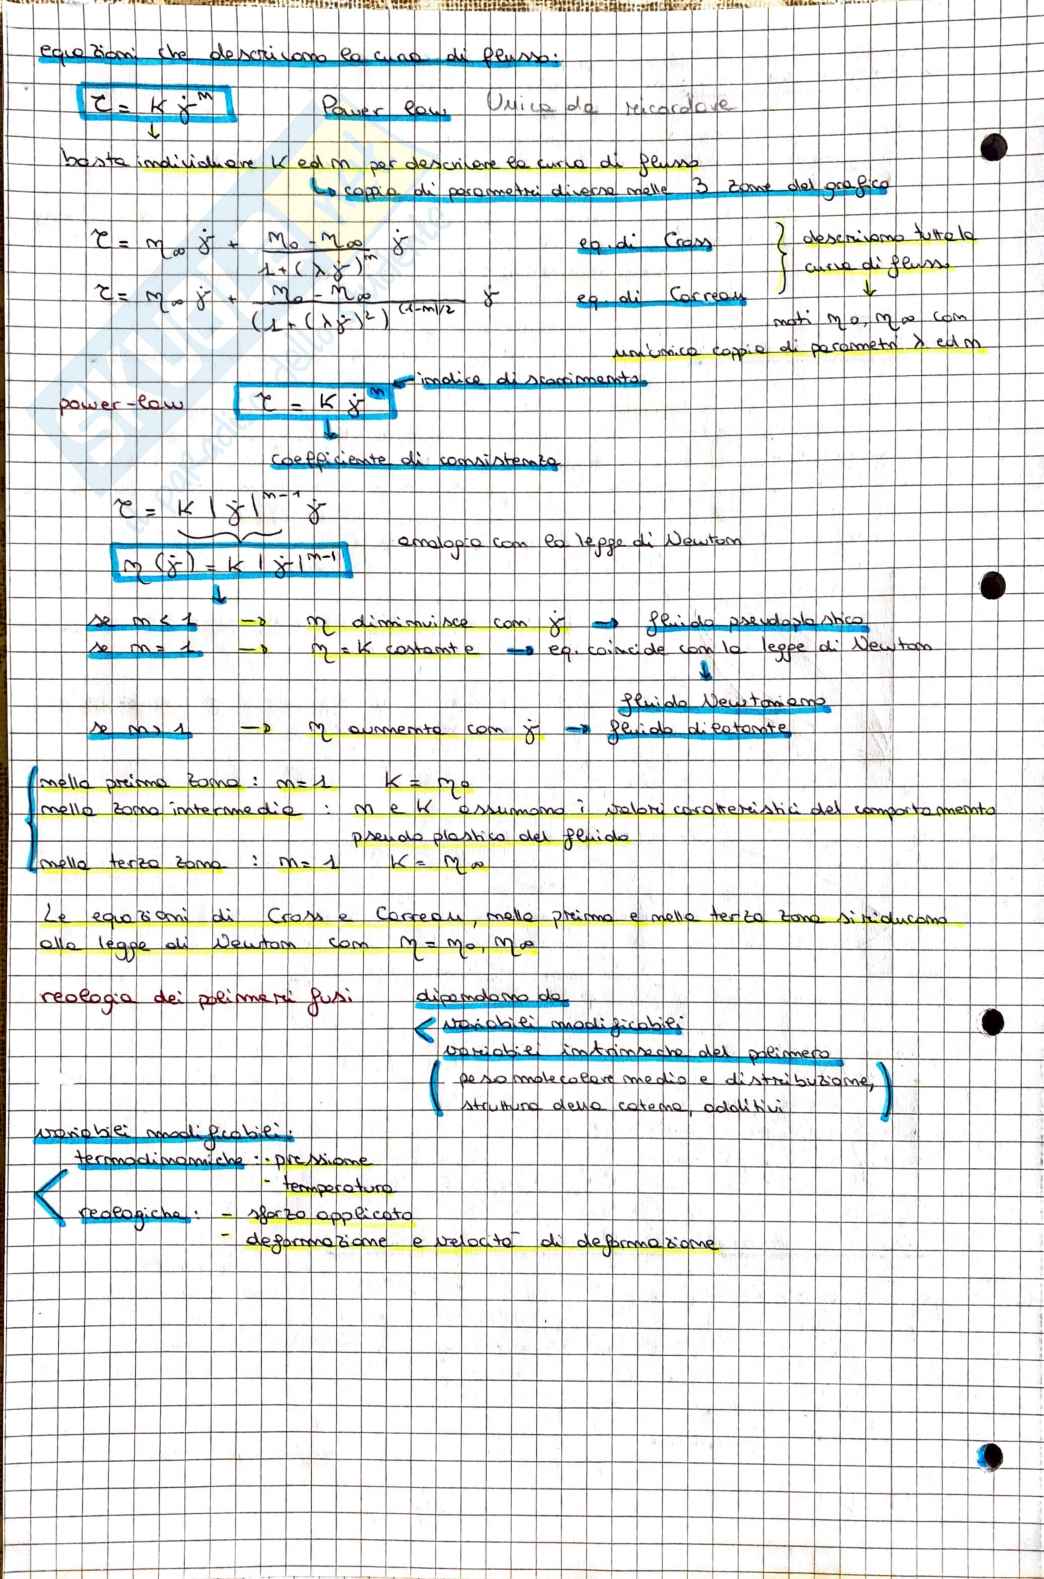 equazioni che descrivono la curva di flusso:
τ = K γ̇ⁿ Power law Unica da ricordare
↓
basta individuare K ed n per descrivere la curva di flusso
↳ coppia di parametri diversa nelle 3 zone del grafico
τ = η∞ γ̇ + (η₀ - η∞)/(1+(λγ̇)ⁿ) γ̇ eq. di Cross } descrivono tutta la
curva di flusso
τ = η∞ γ̇ + (η₀ - η∞)/(1+(λγ̇)²)^((1-n)/2) γ̇ eq. di Carreau ↓
noti η₀, η∞ con
un'unica coppia di parametri λ ed n
power-law τ = K γ̇ⁿ ← indice di scorrimento
↓
coefficiente di consistenza
τ = K |γ̇|ⁿ⁻¹ γ̇
η(γ̇) = K |γ̇|ⁿ⁻¹ analogia con la legge di Newton
↓
se n < 1 → η diminuisce con γ̇ → fluido pseudoplastico
se n = 1 → η = K costante → eq. coincide con la legge di Newton
↓
fluido Newtoniano
se n > 1 → η aumenta con γ̇ → fluido dilatante
nella prima zona : n = 1 K = η₀
nella zona intermedia : n e K assumono i valori caratteristici del comportamento
pseudo plastico del fluido
nella terza zona : n = 1 K = η∞
Le equazioni di Cross e Carreau, nella prima e nella terza zona si riducono
alla legge di Newton con η = η₀, η∞
reologia dei polimeri fusi dipendono da
< variabili modificabili
variabili intrinseche del polimero
( peso molecolare medio e distribuzione,
struttura della catena, additivi )
variabili modificabili:
termodinamiche : - pressione
- temperatura
reologiche : - sforzo applicato
- deformazione e velocità di deformazione